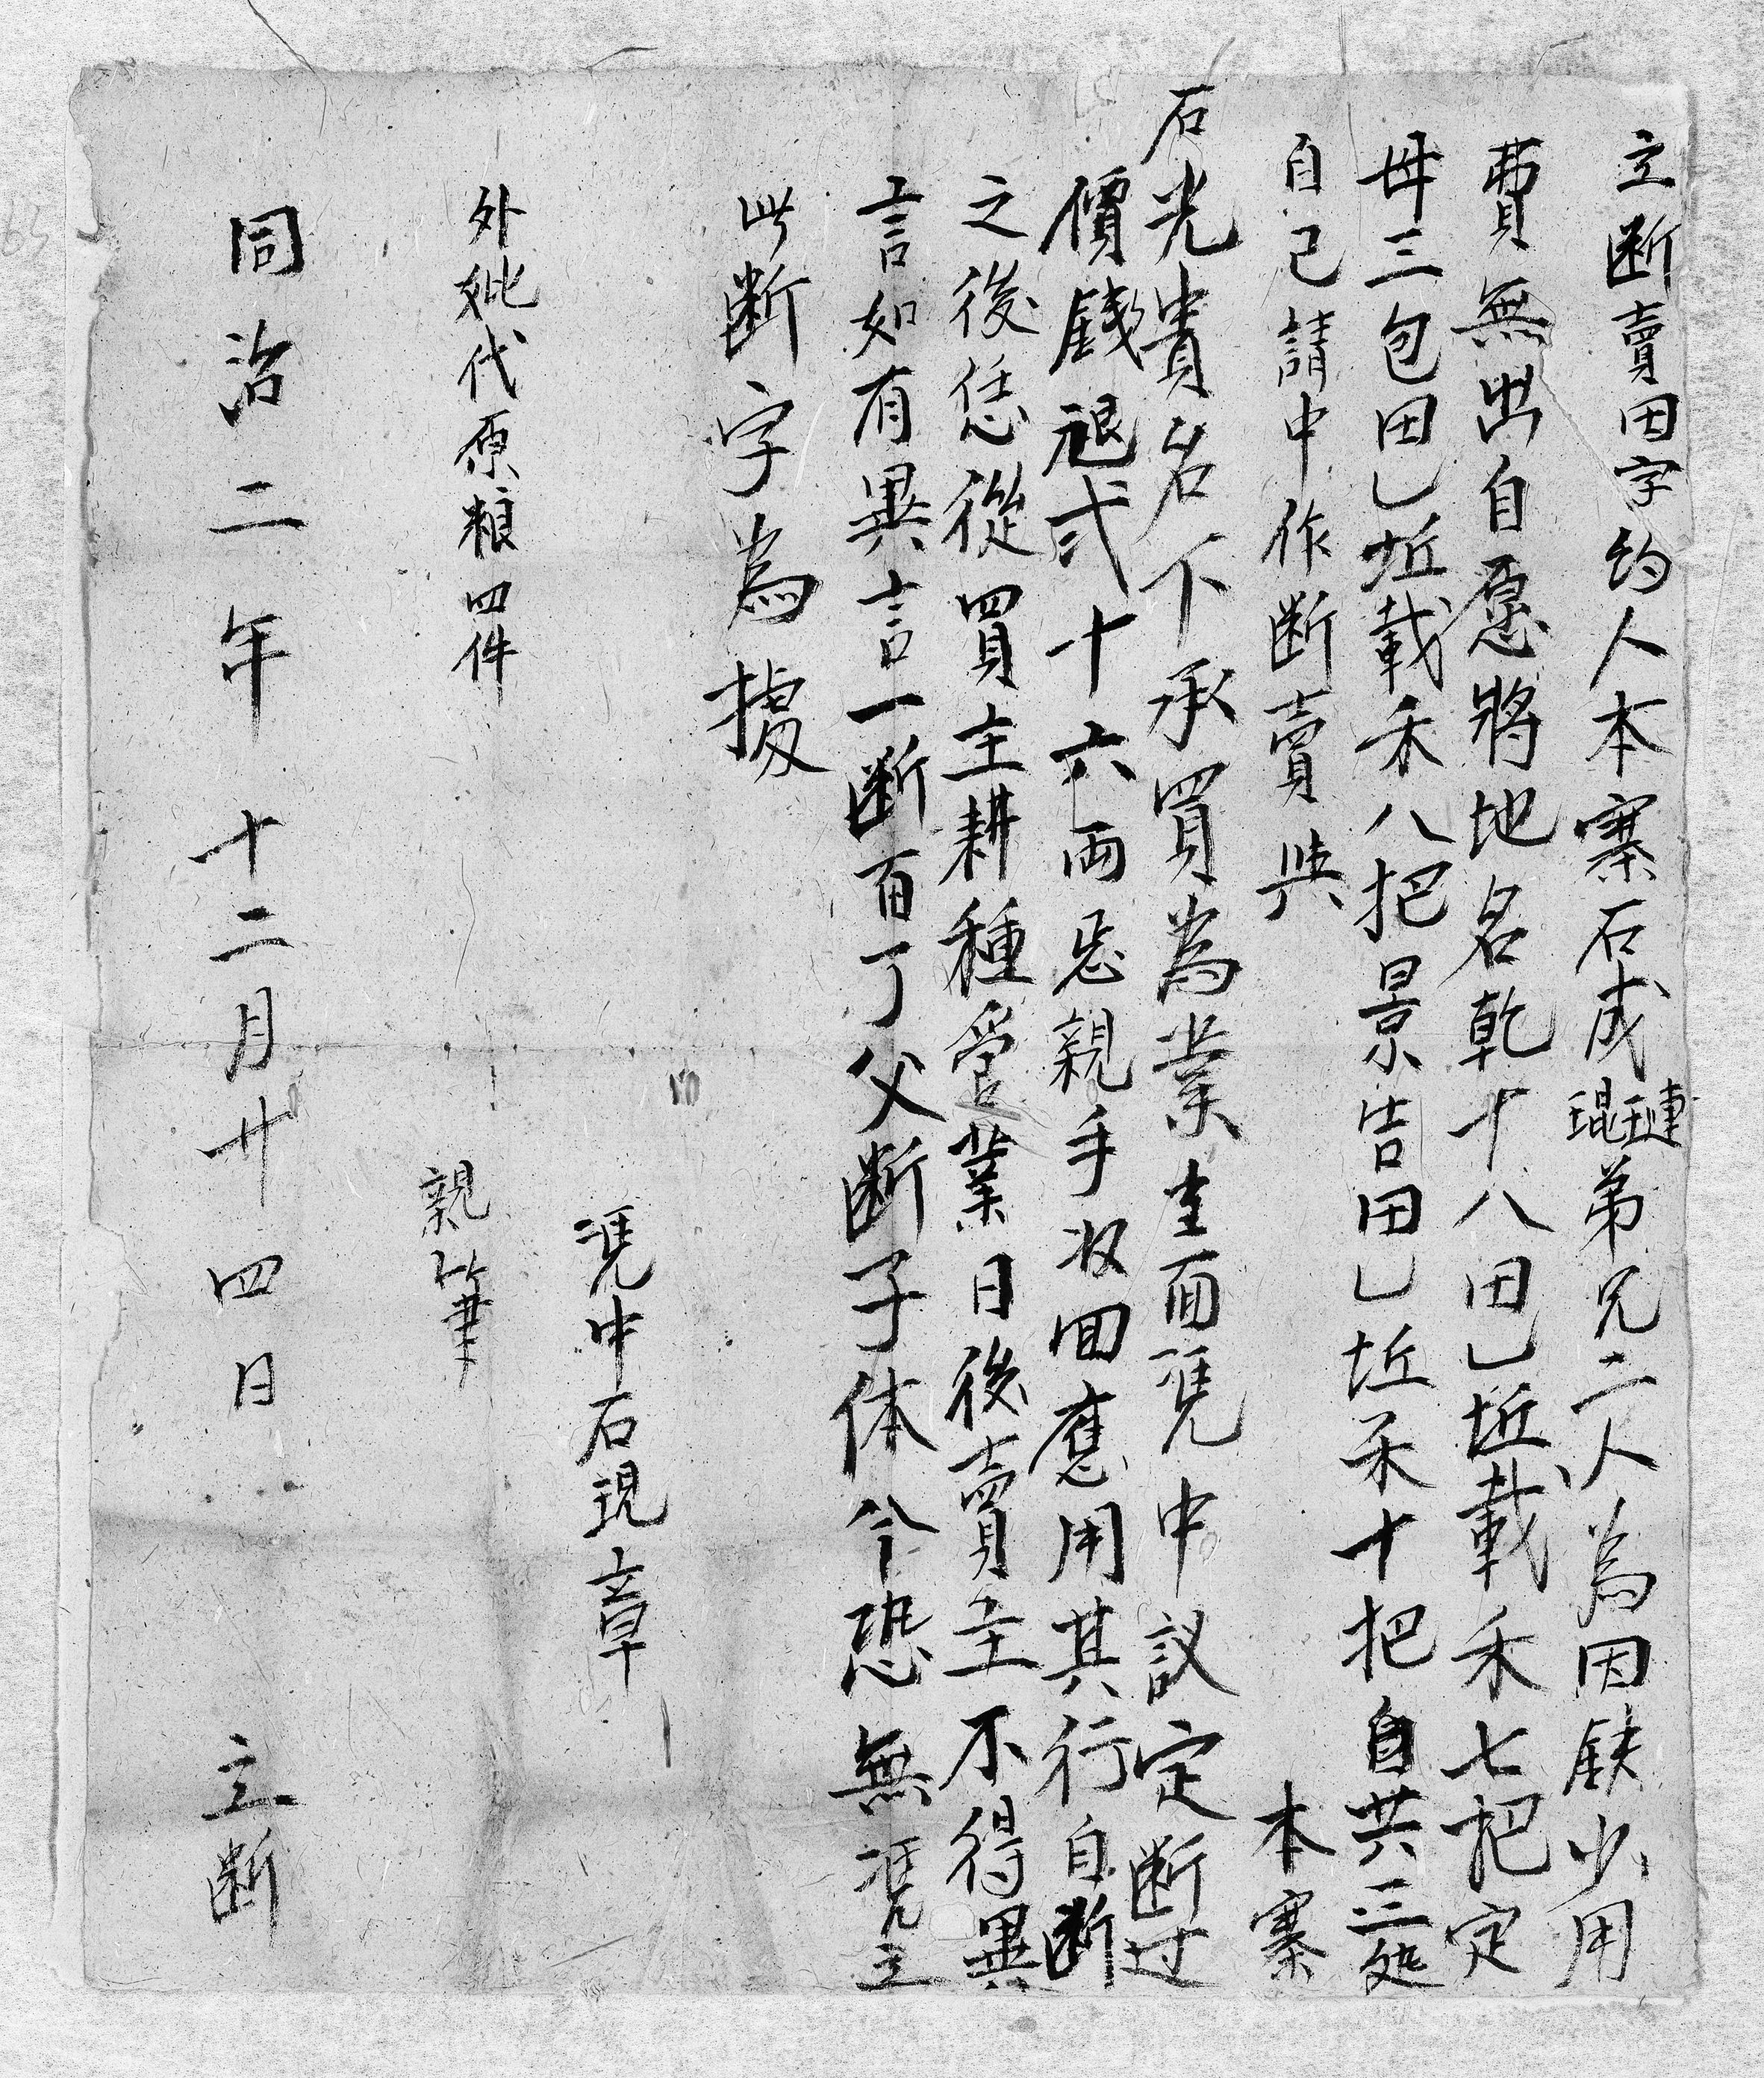 立断賣田字約人本寨石成璉琨弟兄二人為因缺少用
費無出自愿將地名乾十八田乚坵載禾七把定
毌三包田乚坵載禾八把景吉田乚坵禾十把自共三处
自己請中作断賣與 本寨
石光貴名下承買為業当面凴中議定断过
價錢貳十六両㤙親手收回應用其行自断
之後恁從買主耕種管業日後賣主不得異
言如有異言一断百了父断子体今恐無凴立
此断字為據
凴中石現章
外妣代原粮四件
親筆
同治二年十二月廿四日 立断